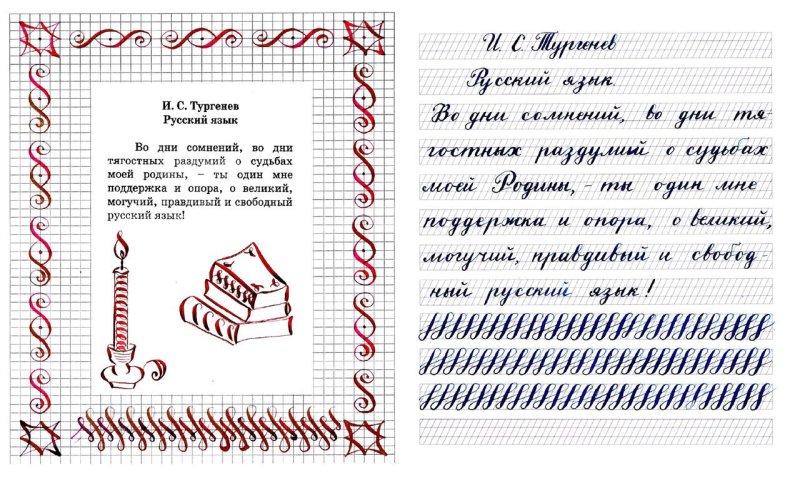 И. С. Тургенев
Русский язык
Во дни сомнений, во дни
тягостных раздумий о судьбах
моей родины, – ты один мне
поддержка и опора, о великий,
могучий, правдивый и свободный
русский язык!
И. С. Тургенев
Русский язык.
Во дни сомнений, во дни тя-
гостных раздумий о судьбах
моей Родины, – ты один мне
поддержка и опора, о великий,
могучий, правдивый и свобод-
ный русский язык!